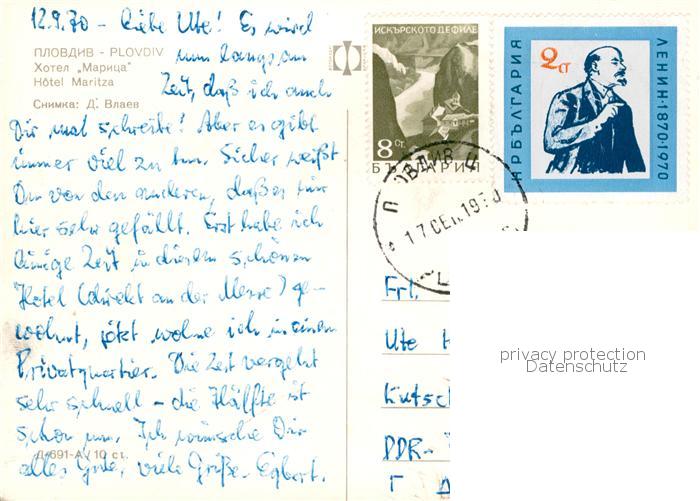 12.9.70 - Liebe Ute! Es wird
nun langsam
Zeit, daß ich auch
Dir mal schreibe! Aber es gibt
immer viel zu tun. Sicher weißt
Du von den anderen, daß es mir
hier sehr gefällt. Erst habe ich
einige Zeit in diesem schönen
Hotel (direkt an der Messe) ge-
wohnt, jetzt wohne ich in einem
Privatquartier. Die Zeit vergeht
sehr schnell - die Hälfte ist
schon um. Ich wünsche Dir
alles Gute, viele Grüße. Egbert.
ПЛОВДИВ - PLOVDIV
Хотел „Марица"
Hôtel Maritza
Снимка: Д. Влаев
Д-691-А / 10 ст.
ИСКЪРСКОТО ДЕФИЛЕ
8 СТ.
БЪЛГАРИЯ
НР БЪЛГАРИЯ
2 ст
ЛЕНИН·1870·1970
ПЛОВДИВ Ц
17 СЕП. 1970
Frl.
Ute
Kutsc
DDR-
privacy protection
Datenschutz